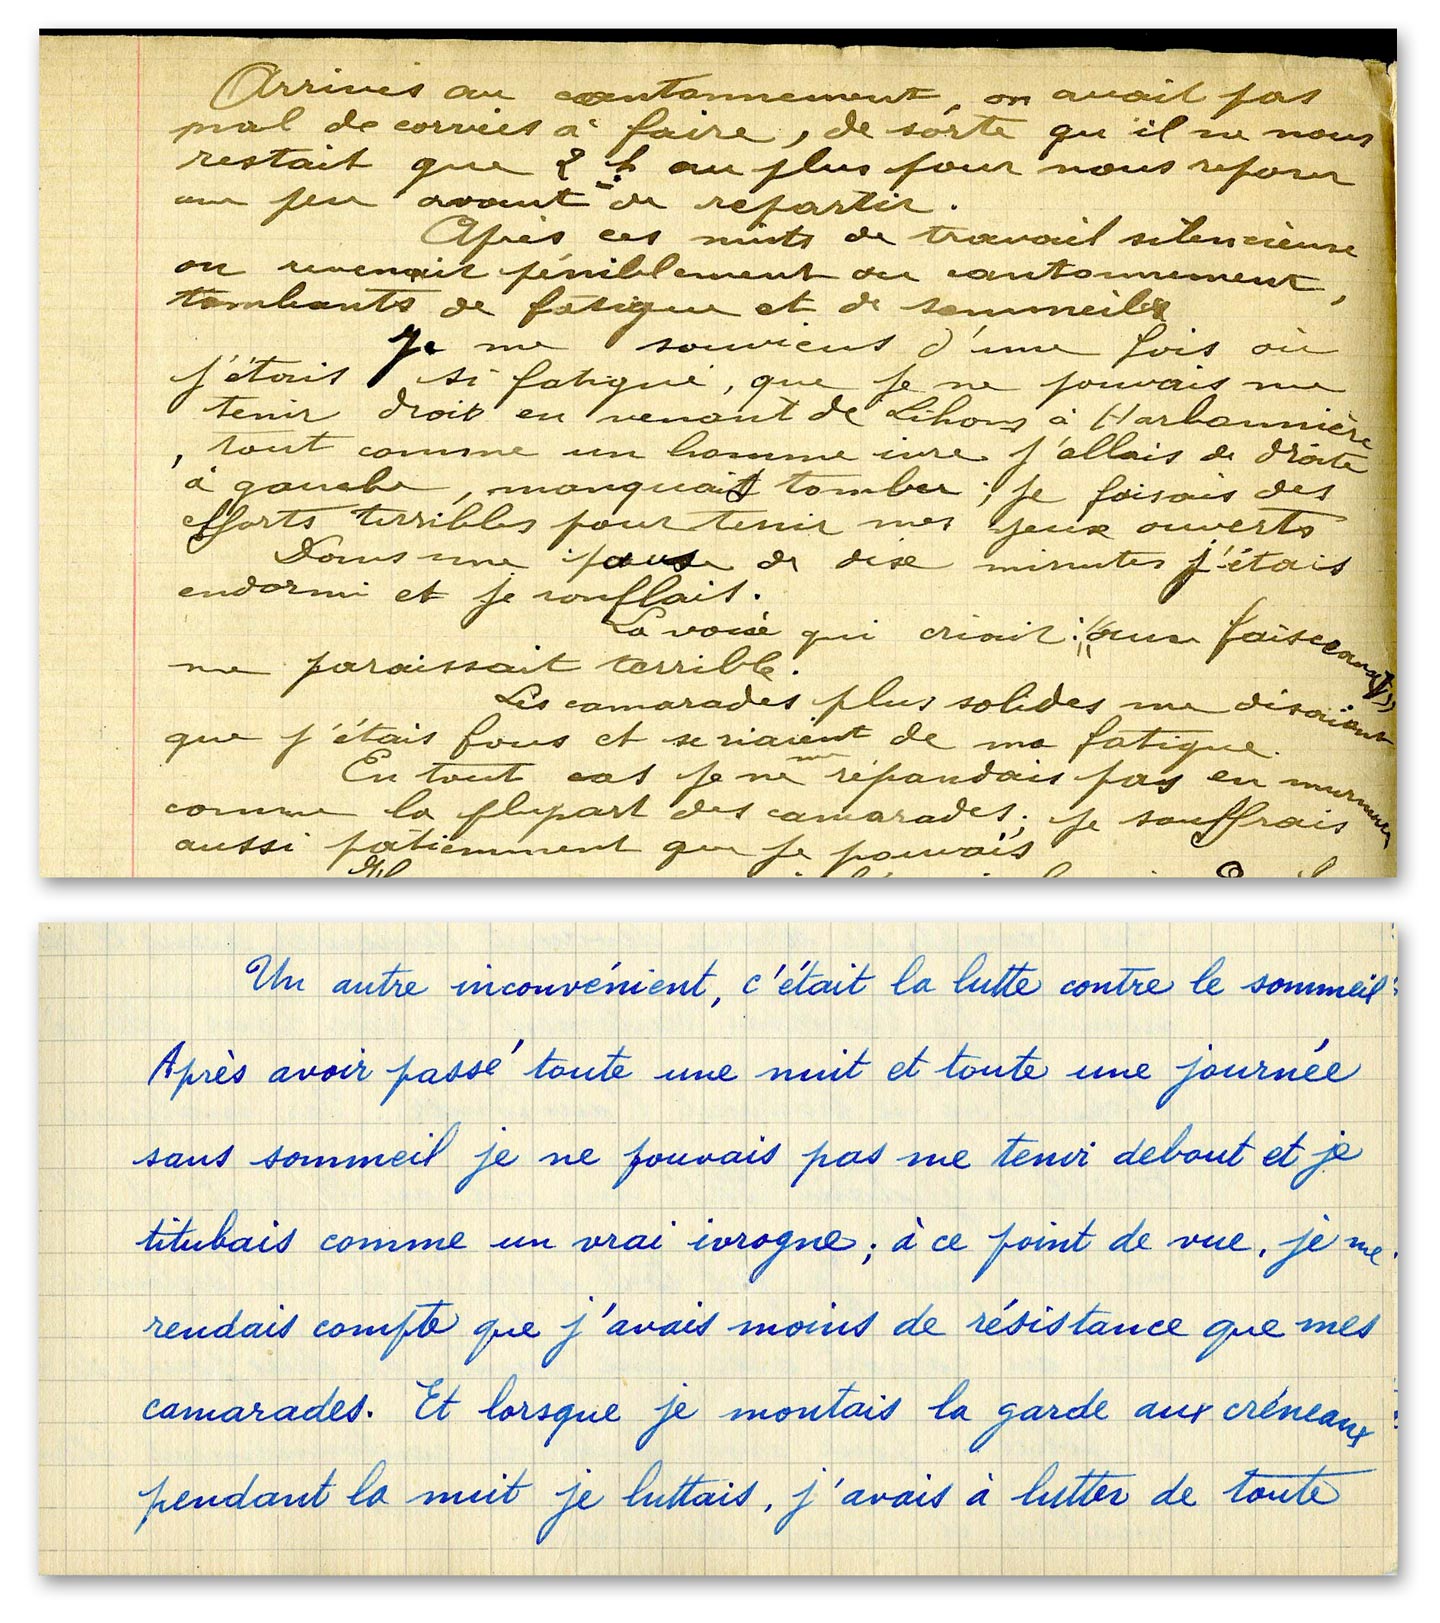 Arrivés au cantonnement, on avait pas
mal de corvées à faire, de sorte qu'il ne nous
restait que 2 h. au plus pour nous reposer
un peu avant de repartir.
Après ces nuits de travail silencieuse
on revenait péniblement au cantonnement,
tombants de fatigue et de sommeil
Je me souviens d'une fois où
j'étais si fatigué, que je ne pouvais me
tenir droit en venant de Lihons à Harbonnière
, tout comme un homme ivre j'allais de droite
à gauche, manquait tomber; je faisais des
efforts terribles pour tenir mes yeux ouverts
Dans une pause de dix minutes j'étais
endormi et je ronflais.
La voix qui criait: "aux faisceaux"
me paraissait terrible.
Les camarades plus solides me disaient
que j'étais fous et se riaient de ma fatigue.
En tout cas je ne me répandais pas en murmures
comme la plupart des camarades; je souffrais
aussi patiemment que je pouvais
Un autre inconvénient, c'était la lutte contre le sommeil
Après avoir passé toute une nuit et toute une journée
sans sommeil je ne pouvais pas me tenir debout et je
titubais comme un vrai ivrogne; à ce point de vue, je me
rendais compte que j'avais moins de résistance que mes
camarades. Et lorsque je montais la garde aux créneaux
pendant la nuit je luttais, j'avais à lutter de toute